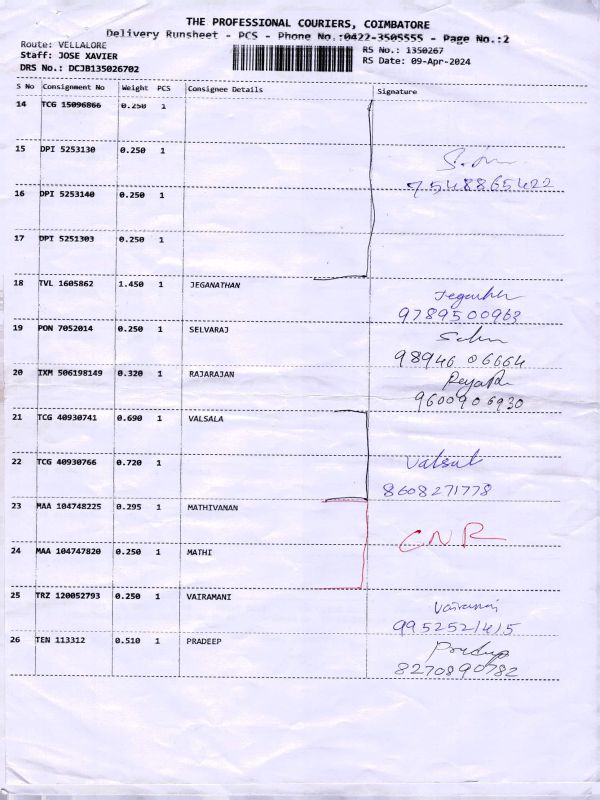 THE PROFESSIONAL COURIERS, COIMBATORE
Delivery Runsheet - PCS - Phone No.:0422-3505555 - Page No.:2
Route: VELLALORE
RS No.: 1350267
Staff: JOSE XAVIER
RS Date: 09-Apr-2024
DRS No.: DCJB135026702
S No Consignment No Weight PCS Consignee Details Signature
14 TCG 15096866 0.250 1
15 DPI 5253130 0.250 1
16 DPI 5253140 0.250 1
7548865422
17 DPI 5251303 0.250 1
18 TVL 1605862 1.450 1 JEGANATHAN
9789500963
19 PON 7052014 0.250 1 SELVARAJ
98946 06664
20 IXM 506198149 0.320 1 RAJARAJAN
9600906930
21 TCG 40930741 0.690 1 VALSALA
22 TCG 40930766 0.720 1 Valsal
8608271778
23 MAA 104748225 0.295 1 MATHIVANAN
CNR
24 MAA 104747820 0.250 1 MATHI
25 TRZ 120052793 0.250 1 VAIRAMANI
Vairamani
9952521415
26 TEN 113312 0.510 1 PRADEEP
Pradeep
8270890782